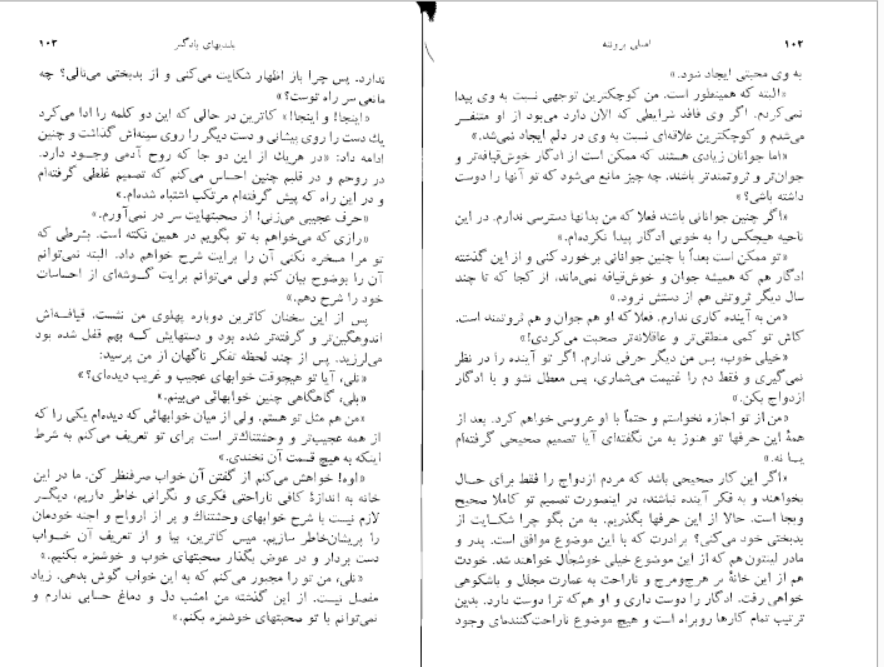 ۱۰۲ امیلی برونته
به وی محبتی ایجاد شود.»
«البته که همینطور است. من کوچکترین توجهی نسبت به وی پیدا
نمی‌کردم. اگر وی فاقد شرایطی که الان دارد می‌بود از او متنفر
می‌شدم و کوچکترین علاقه‌ای نسبت به وی در دلم ایجاد نمی‌شد.»
«اما جوانان زیادی هستند که ممکن است از ادگار خوش‌قیافه‌تر و
جوان‌تر و ثروتمندتر باشند، چه چیز مانع می‌شود که تو آنها را دوست
داشته باشی؟»
«اگر چنین جوانانی باشند فعلا که من بدانها دسترسی ندارم. در این
ناحیه هیچکس را به خوبی ادگار پیدا نکرده‌ام.»
«تو ممکن است بعداً با چنین جوانانی برخورد کنی و از این گذشته
ادگار هم که همیشه جوان و خوش‌قیافه نمی‌ماند، از کجا که تا چند
سال دیگر ثروتش هم از دستش نرود.»
«من به آینده کاری ندارم. فعلا که او هم جوان و هم ثروتمند است.
کاش تو کمی منطقی‌تر و عاقلانه‌تر صحبت می‌کردی!»
«خیلی خوب، پس من دیگر حرفی ندارم. اگر تو آینده را در نظر
نمی‌گیری و فقط دم را غنیمت می‌شماری، پس معطل نشو و با ادگار
ازدواج بکن.»
«من از تو اجازه نخواستم و حتماً با او عروسی خواهم کرد. بعد از
همهٔ این حرفها تو هنوز به من نگفته‌ای آیا تصمیم صحیحی گرفته‌ام
یـا نه.»
«اگر این کار صحیحی باشد که مردم ازدواج را فقط برای حـال
بخواهند و به فکر آینده نباشند، در اینصورت تصمیم تو کاملا صحیح
وبجا است. حالا از این حرفها بگذریم. به من بگو چرا شکـایت از
بدبختی خود می‌کنی؟ برادرت که با این موضوع موافق است. پدر و
مادر لینتون هم که از این موضوع خیلی خوشحال خواهند شد. خودت
هم از این خانهٔ پر هرج‌ومرج و ناراحت به عمارت مجلل و باشکوهی
خواهی رفت. ادگار را دوست داری و او هم‌که ترا دوست دارد. بدین
ترتیب تمام کارها روبراه است و هیچ موضوع ناراحت‌کننده‌ای وجود
بلندیهای بادگیر ۱۰۳
ندارد. پس چرا باز اظهار شکایت می‌کنی و از بدبختی می‌نالی؟ چه
مانعی سر راه توست؟»
«اینجا! و اینجا!» کاترین در حالی که این دو کلمه را ادا می‌کرد
یك دست را روی پیشانی و دست دیگر را روی سینه‌اش گذاشت و چنین
ادامه داد: «در هریك از این دو جا که روح آدمی وجـود دارد.
در روحم و در قلبم چنین احساس می‌کنم که تصمیم غلطی گرفته‌ام
و در این راه که پیش گرفته‌ام مرتکب اشتباه شده‌ام.»
«حرف عجیبی می‌زنی! از صحبتهایت سر در نمی‌آورم.»
«رازی که می‌خواهم به تو بگویم در همین نکته است. بشرطی که
تو مرا مسخره نکنی آن را برایت شرح خواهم داد. البته نمی‌توانم
آن را بوضوح بیان کنم ولی می‌توانم برایت گـوشه‌ای از احساسات
خود را شرح دهم.»
پس از این سخنان کاترین دوباره پهلوی من نشست. قیافـه‌اش
اندوهگین‌تر و گرفته‌تر شده بود و دستهایش کـه بهم قفل شده بود
می‌لرزید. پس از چند لحظه تفکر ناگهان از من پرسید:
«نلی، آیا تو هیچوقت خوابهای عجیب و غریب دیده‌ای؟»
«بلی، گاهگاهی چنین خوابهائی می‌بینم.»
«من هم مثل تو هستم. ولی از میان خوابهائی که دیده‌ام یکی را که
از همه عجیب‌تر و وحشتناك‌تر است برای تو تعریف می‌کنم به شرط
اینکه به هیچ قسمت آن نخندی.»
«اوه! خواهش می‌کنم از گفتن آن خواب صرفنظر کن. ما در این
خانه به اندازهٔ کافی ناراحتی فکری و نگرانی خاطر داریم، دیگـر
لازم نیست با شرح خوابهای وحشتناك و پر از ارواح و اجنه خودمان
را پریشان‌خاطر سازیم. میس کاترین، بیا و از تعریف آن خـواب
دست بردار و در عوض بگذار صحبتهای خوب و خوشمزه بکنیم.»
«نلی، من تو را مجبور می‌کنم که به این خواب گوش بدهی. زیاد
مفصل نیست. از این گذشته من امشب دل و دماغ حسابی ندارم و
نمی‌توانم با تو صحبتهای خوشمزه بکنم.»